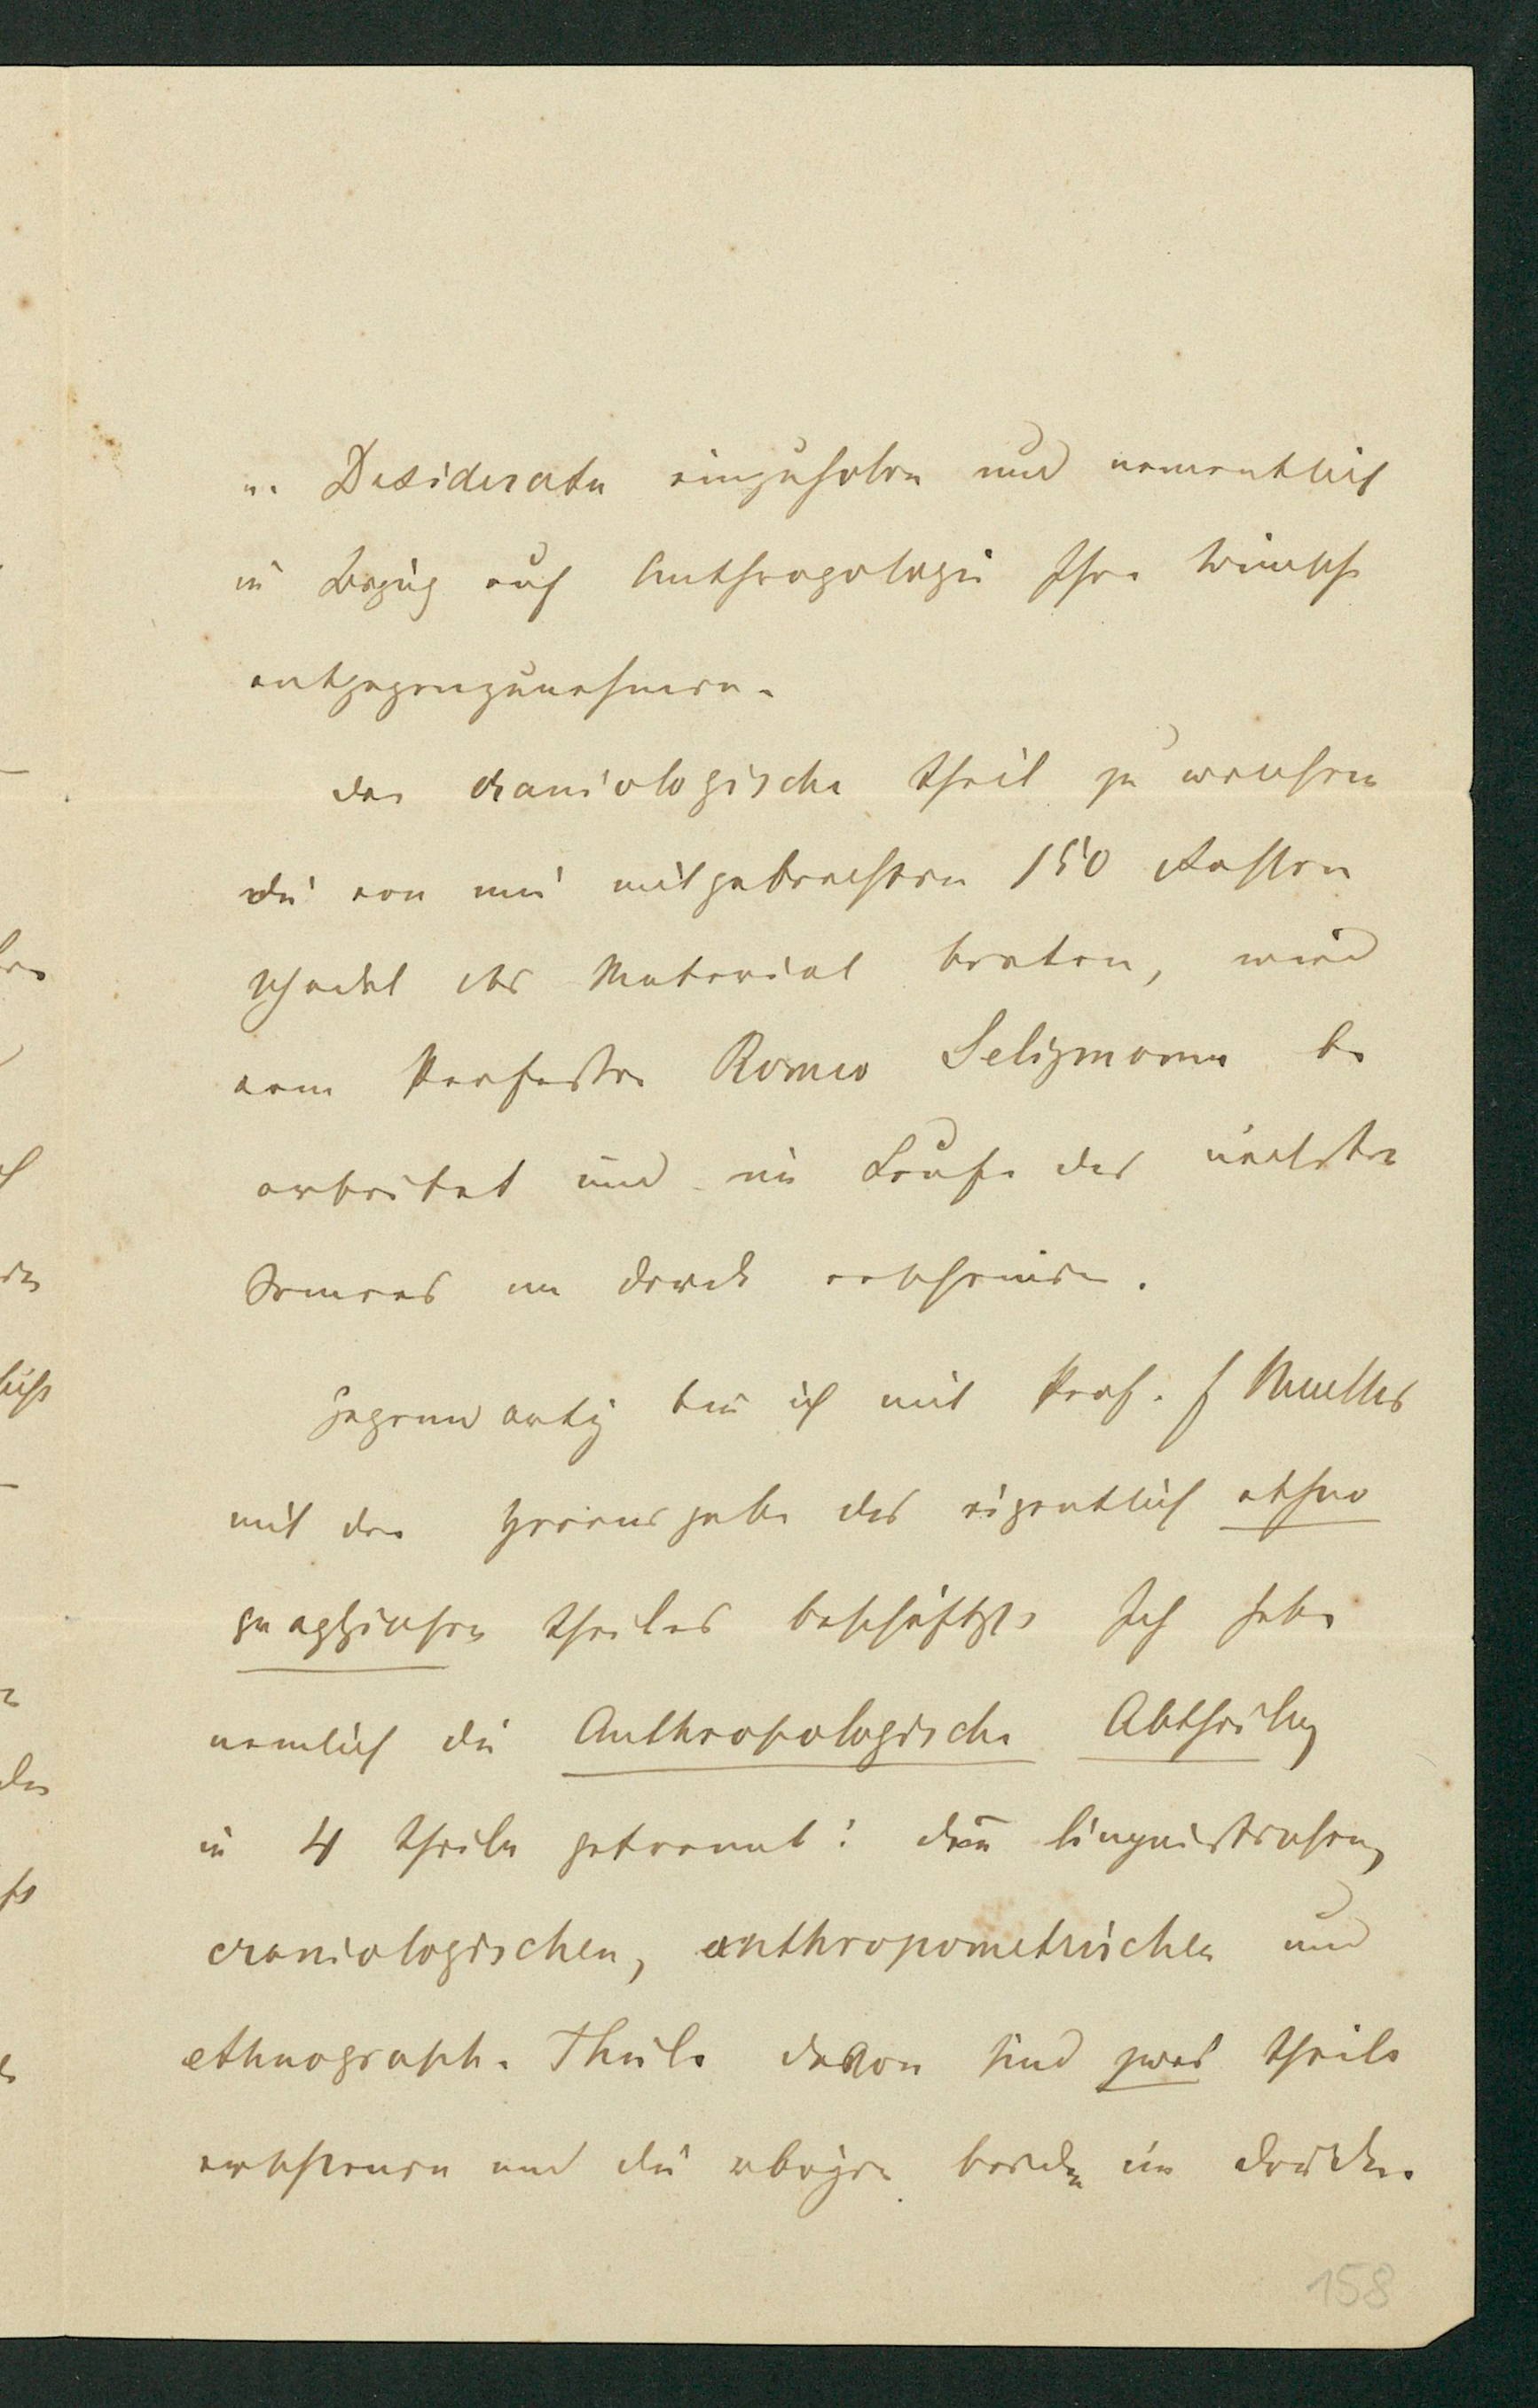 u. Desiderata einzuholen und namentlich
in Bezug auf Anthropologie Ihre Wünsche
entgegenzunehmen.
Der craniologische Theil zu welchen
die von mir mitgebrachten 150 Rassen
schädel das Material boten, wird
vom Professor Romeo Seligmann be
arbeitet und im Laufe des nächsten
Sommers im Druck erscheinen.
Gegenwärtig bin ich mit Prof. F Mueller
mit der Herausgabe des eigentlich ethno
graphischen Theiles beschäftigt. Ich habe
nemlich die Anthropologische Abtheilung
in 4 Theile getrennt: den linguistischen,
craniologischen, anthropometrischen und
ethnograph. Theil. davon sind zwei Theile
erschienen und die übrigen beiden im Drucke.
158